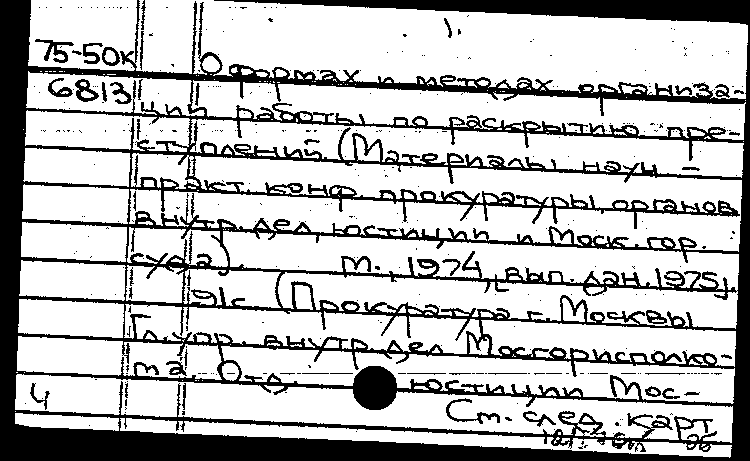 1.
75-50к
6813
О формах и методах организа-
ции работы по раскрытию пре-
ступлений. (Материалы науч-
практ. конф. прокуратуры, органов
внутр. дел, юстиции и Моск. гор.
суда). М., 1974, [вып. дан. 1975].
91с (Прокуратура г. Москвы
Гл. упр. внутр. дел Мосгорисполко-
ма. Отд. юстиции Мос-
4
См. след. карт